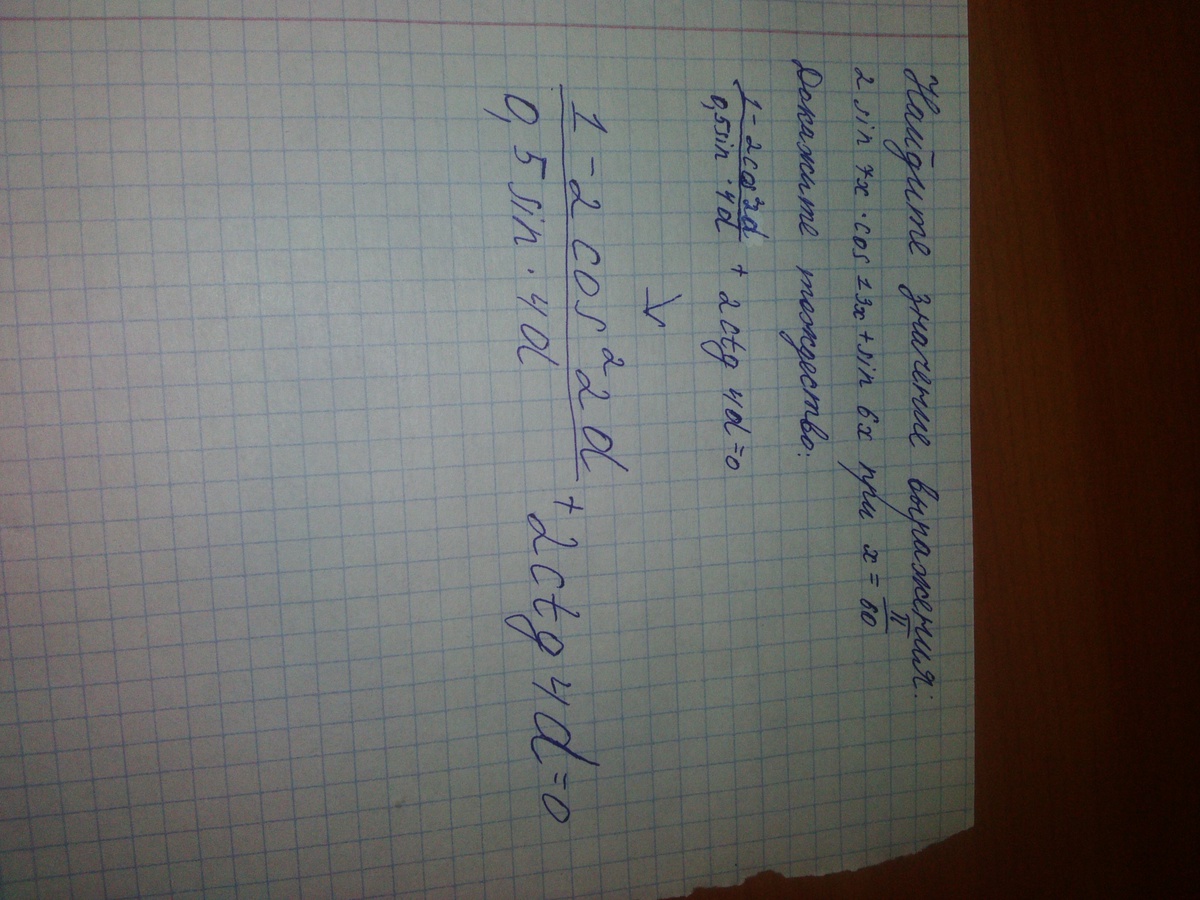 Найдите значение выражения:
2 sin 7x · cos 13x + sin 6x при x = π/60
Докажите тождество:
(1 - 2cos²2α)/(0,5sin · 4α) + 2ctg 4α = 0
(1 - 2cos²2α)/(0,5sin · 4α) + 2ctg 4α = 0